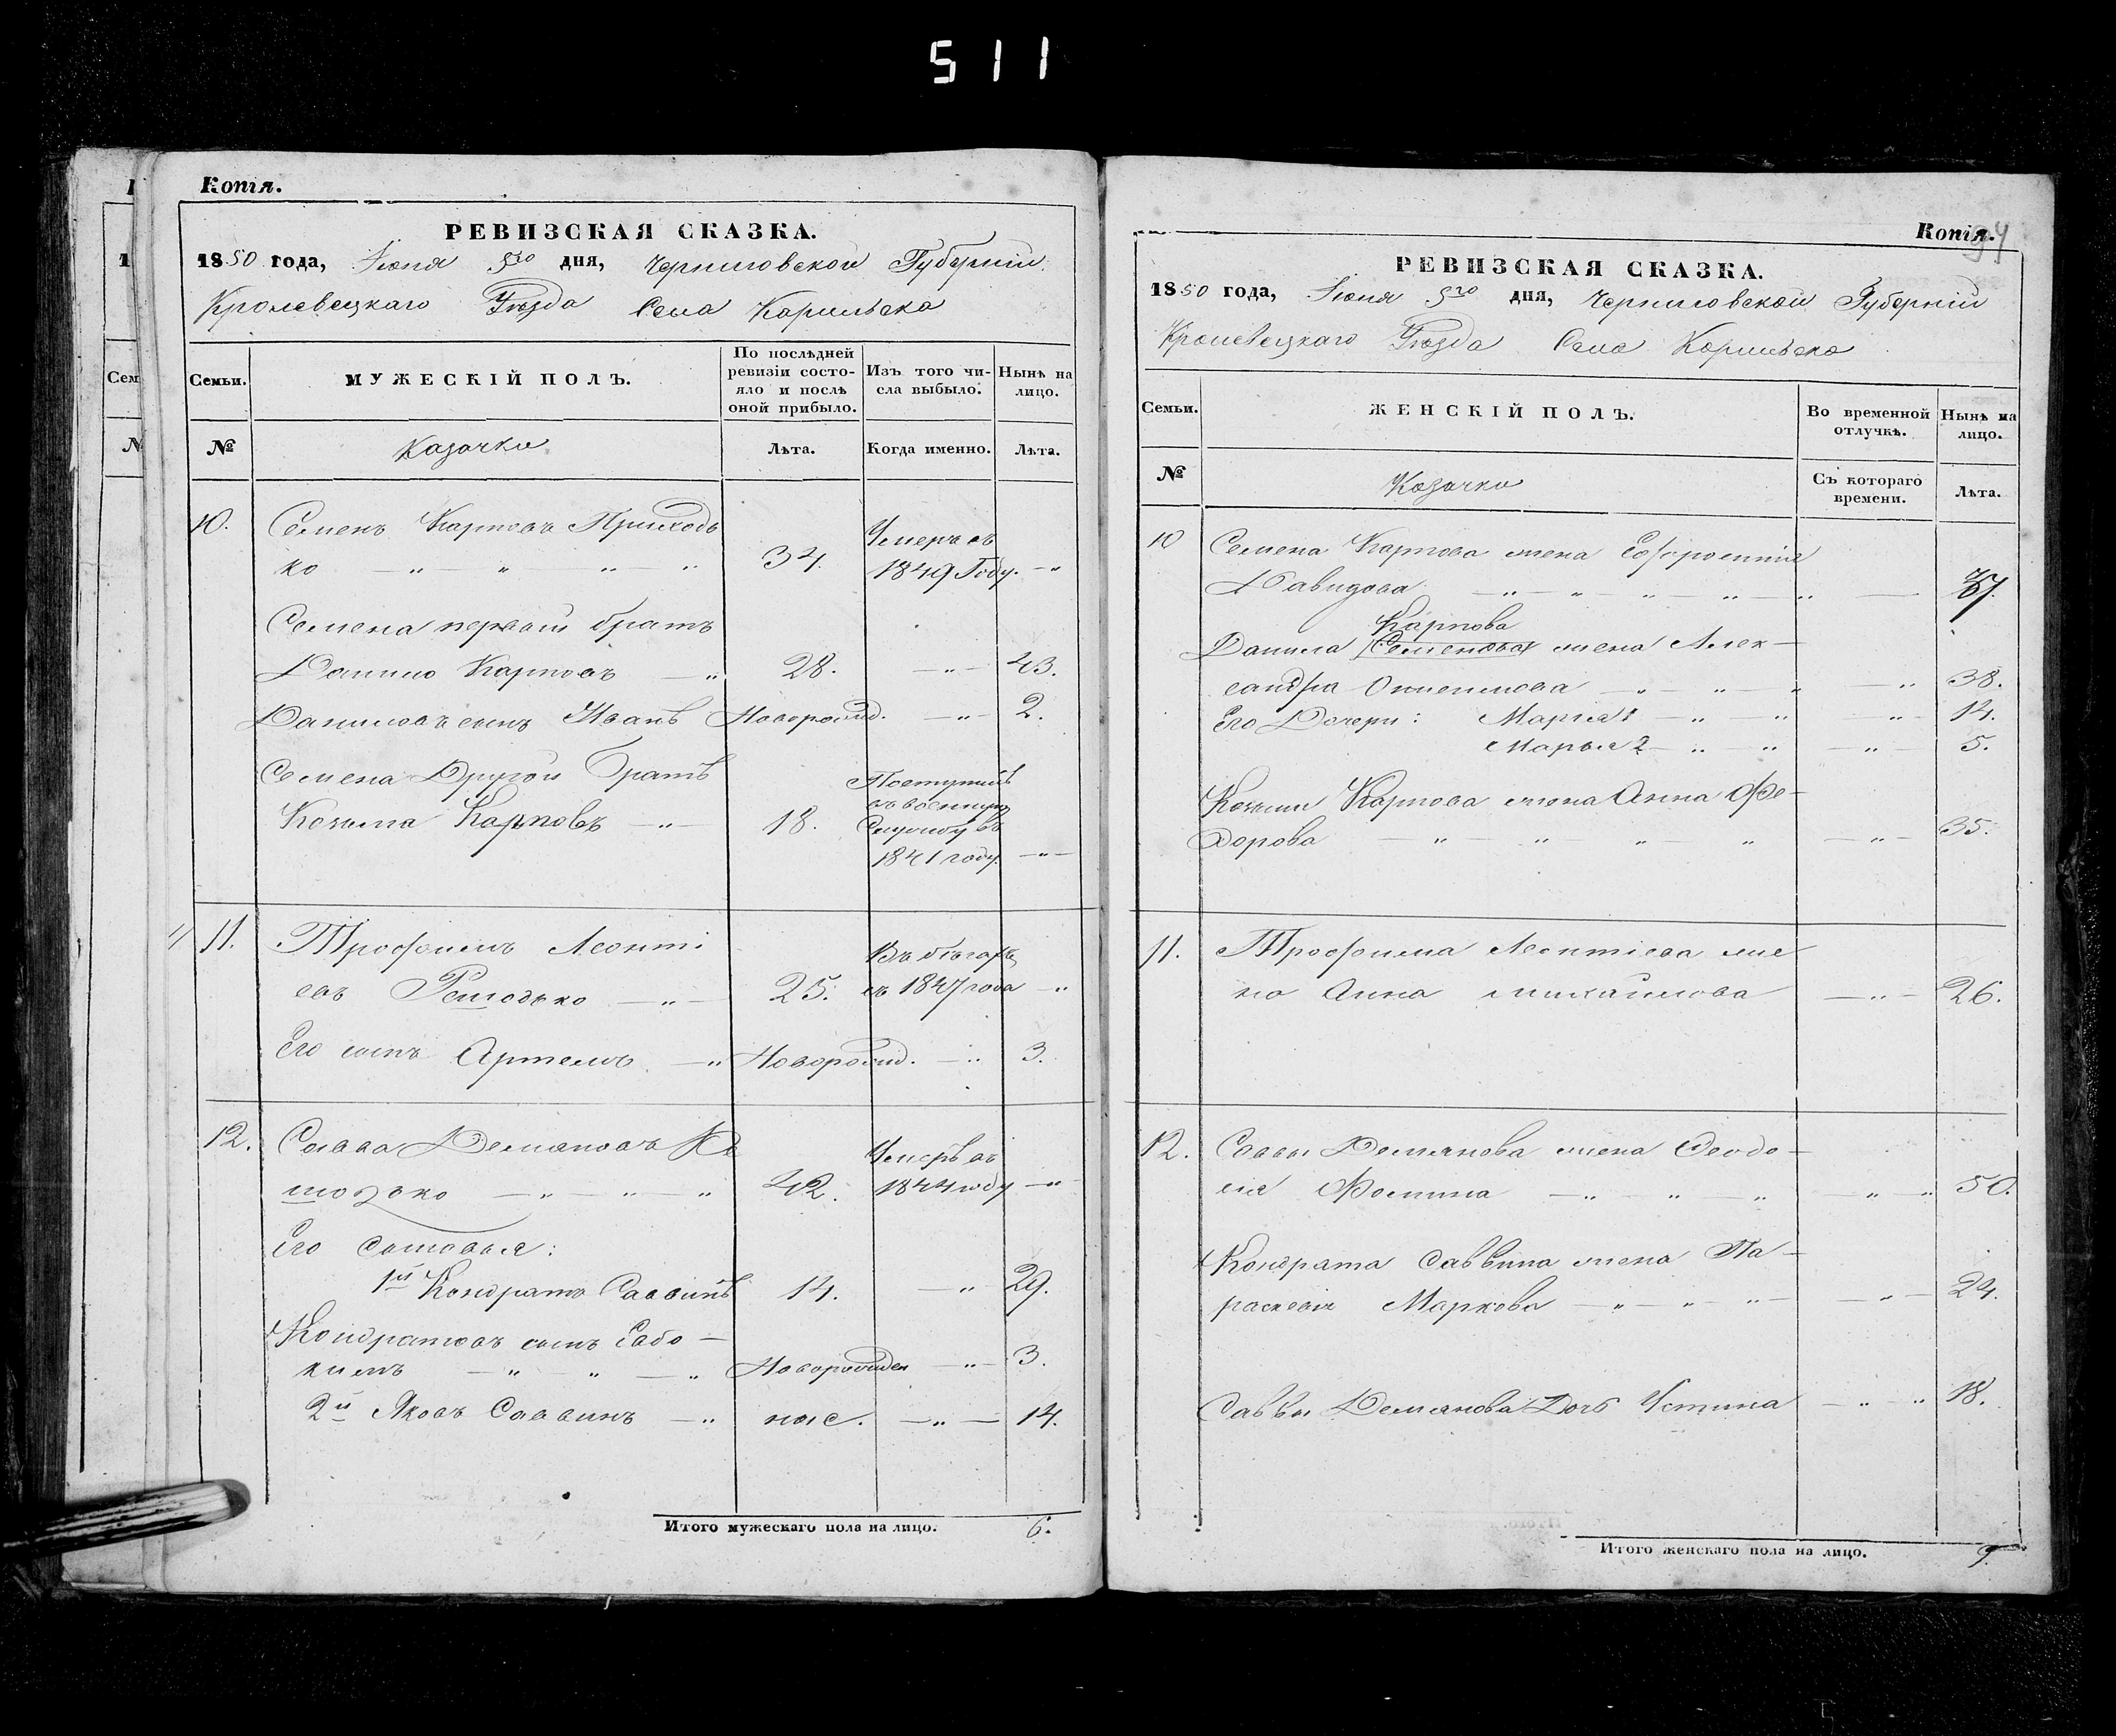 511
Копія.
РЕВИЗСКАЯ СКАЗКА.
1850 года, Іюня 5го дня, Черниговской Губерніи
Кролевецкаго Уѣзда Села Корильска
Семьи.
МУЖЕСКІЙ ПОЛЪ.
По послѣдней ревизіи состояло и послѣ оной прибыло.
Изъ того числа выбыло.
Нынѣ на лицо.
№
Казачки
Лѣта.
Когда именно.
Лѣта.
10. Семенъ Карповъ Приходь
ко 34. Умеръ въ 1849 Году.
Семена первый братъ
Данило Карповъ 28. 43.
Даниловъ сынъ Иванъ Новорожд. 2.
Семена Другой Братъ
Козьма Карповъ 18. Поступилъ въ военную Службу въ 1841 году.
11. Трофимъ Леонті
евъ 25. Въ бѣгахъ съ 1847 года
Его сынъ Артемъ Новорожд. 3.
12. Савва Демяновъ Ре
шодько 42. Умеръ въ 1844 году
Его Сыновья:
1й Кондратъ Саввинъ 14. 29.
Кондратовъ сынъ Евдо-
кимъ Новорожден 3.
2й Яковъ Саввинъ 14.
Итого мужескаго пола на лицо. 6.
Копія.
94
РЕВИЗСКАЯ СКАЗКА.
1850 года, Іюня 5го дня, Черниговской Губерніи
Кролевецкаго Уѣзда Села Корильска
Семьи.
ЖЕНСКІЙ ПОЛЪ.
Во временной отлучкѣ.
Нынѣ на лицо.
№
Козачки
Съ котораго времени.
Лѣта.
10 Семена Карпова жена Ефросинія
Давидова
Карпова
Данила Семенова жена Алек-
сандра 38.
Его Дочери: Марья 1 14.
Марья 2 5.
Козьмы Карпова жена Анна Фе-
дорова 35.
11. Трофима Леонтіева же
на Анна Михайлова 26.
12. Саввы Демянова жена Феодо-
Фомина 50.
Кондрата Саввина жена Па-
раскевія Маркова 24.
Саввы Демянова Дочь Устина 18.
Итого женскаго пола на лицо. 9